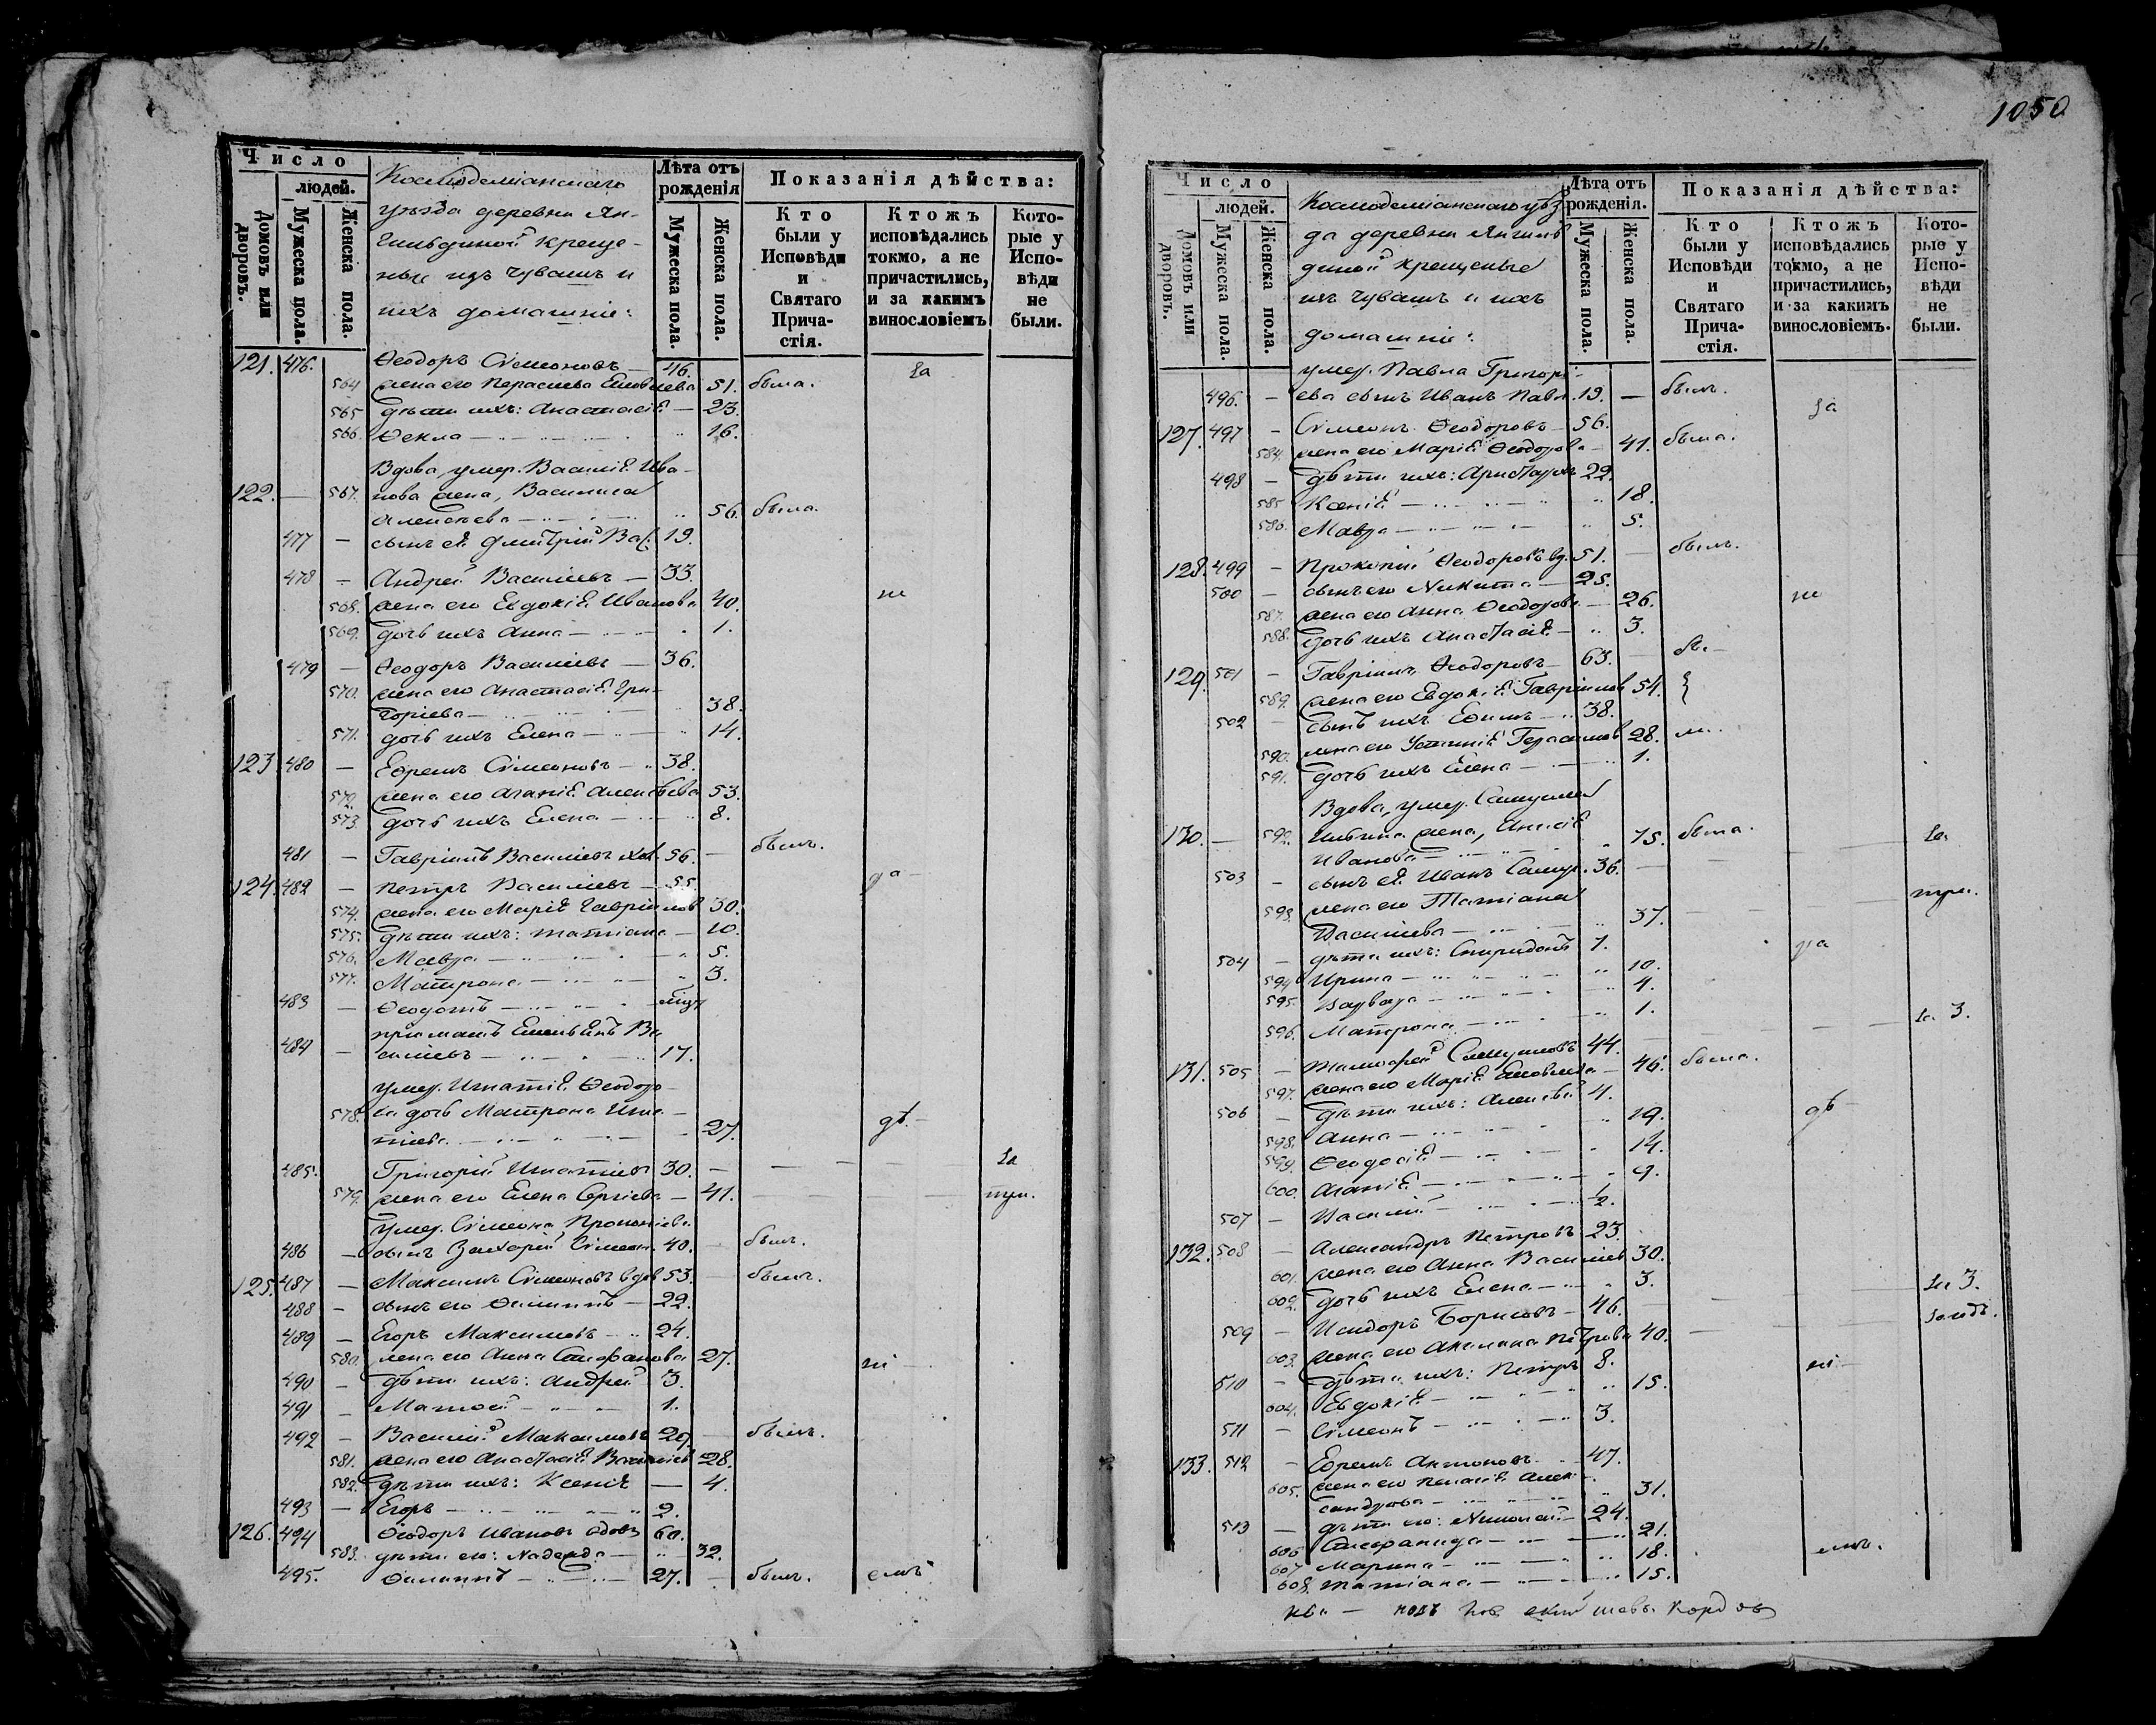 Число
людей.
Домовъ или дворовъ.
Мужеска пола.
Женска пола.
Космодеміанскаго
уѣзда деревни Ян-
гильдиной креще-
ные изъ Чувашъ и
ихъ домашніе:
Лѣта отъ рожденія
Мужеска пола.
Женска пола.
Показанія дѣйства:
Кто были у Исповѣди и Святаго Прича-стія.
Ктожъ исповѣдались токмо, а не причастились, и за какимъ винословіемъ
Кото-рые у Испо-вѣди не были.
121. 476. Ѳеодоръ Сѵмеоновъ — 46. за
564 жена его Параскева 51. была.
565 дѣти ихъ: Анастасія — 23.
566. Ѳекла — 16.
Вдова, умер. Василія Ива-
122. — 567. нова жена, Василиса
Алексѣева — 56. была.
477 — сынъ ея Дмитрій Вас. 19.
478 — Андрей Васильевъ — 33.
568. жена его Евдокія Иванова 40. не
569. дочь ихъ Анна — 1.
479 — Ѳеодоръ Васильевъ — 36.
570. жена его Анастасія Гри-
горіева — 38.
571. дочь ихъ Елена — 14.
123. 480 — Ефремъ Сѵмеоновъ — 38.
572. жена его Агаѳія Алексѣева 53.
573 дочь ихъ Елена — 8.
481 — Гавріилъ Васильевъ 56. — былъ.
124. 482 — Петръ Васильевъ — 55. да —
574. жена его Марія Гавріилов 30.
575. дѣти ихъ: Татіана — 10.
576. Мавра — 5.
577. Матрона — 3.
483 — Ѳеодотъ —
Емельянъ Ва
484 — сильевъ — 17.
умер. Игнатія Ѳеодоро-
578. ва дочь Матрона Игна-
тіева — 27. дѣ —
485. Григорій Игнатіевъ 30. — за
579. жена его Елена Сергіева — 41.
умер. Сѵмеона Прокопіева
486 — сынъ Захарій Сѵмеон. 40. — былъ.
125. 487 — Максимъ Сѵмеоновъ вдов 53. — былъ.
488 — сынъ его Филиппъ — 22.
489 — Егоръ Максимовъ — 24.
580. жена его Анна Стефанова 27.
490 — дѣти ихъ: Андрей 3.
491 — Матѳей — 1.
492 — Василій Максимовъ 29. — былъ.
581. жена его Анастасія Васильев 28.
582. дѣти ихъ: Ксенія — 4.
493 — Егоръ — 2.
126. 494 Ѳеодоръ Ивановъ вдовъ 60.
583. дѣти его: Надежда — 32.
495. Филиппъ — 27. — былъ.
1050
Число
людей.
Домовъ или дворовъ.
Мужеска пола.
Женска пола.
Космодеміанскаго уѣз
да деревни Янгиль
диной крещеные
изъ Чувашъ и ихъ
домашніе:
Лѣта отъ рожденія.
Мужеска пола.
Женска пола.
Показанія дѣйства:
Кто были у Исповѣди и Святаго Прича-стія.
Ктожъ исповѣдались токмо, а не причастились, и за какимъ винословіемъ.
Кото-рые у Испо-вѣди не были.
умер. Павла Григорі-
496. — ева сынъ Иванъ Павл. 19. — былъ.
127. 497 — Сѵмеонъ Ѳеодоровъ — 56. за
584. жена его Марія Ѳеодорова — 41. была.
498 — дѣти ихъ: Аристархъ 22.
585 Ксенія — 18.
586. Мавра — 5.
128. 499 — Прокопій Ѳеодоровъ вд. 51. — былъ.
500 — сынъ его Никита — 25.
587. жена его Анна Ѳеодорова — 26. не
588. дочь ихъ Анастасія — 3.
129. 501 — Гавріилъ Ѳеодоровъ — 63. —
589. жена его Евдокія Гавріилов 54.
502 — сынъ ихъ Ефимъ — 38.
590. жена его Устинія Герасимов 28.
591. дочь ихъ Елена — 1.
Вдова, умер. Самуила
130. — 592. Ильина жена, Анисія
Иванова — 75. была. за
503 — сынъ ея Иванъ Самуи. 36. —
593. жена его Татіана
Васильева — 37.
504 — дѣти ихъ: Спиридонъ 7.
594 Ирина — 10.
595. Варвара — 4.
596. Матрона — 1. за 3.
131. 505 — Тимофей Самуиловъ 44. —
597. жена его Марія — 46. была.
506 — дѣти ихъ: Алексѣй 4. дѣ —
598. Анна — 19.
599. Ѳеодосія — 14.
600. Агаѳія — 9.
507 — Василій — ½.
132. 508 — Александръ Петровъ 23.
601. жена его Анна Васильев 30.
602. дочь ихъ Елена — 3. за 3.
509 — Исидоръ Борисовъ — 46. —
603. жена его Акилина Петрова 40.
510 — дѣти ихъ: Петръ 8.
604. Евдокія — 15.
511 — Сѵмеонъ — 3.
133. 512 — Ефремъ Антоновъ 47.
605. жена его Пелагія Алек-
сандрова — 31.
513 — дѣти его: Николай — 24.
606 Стефанида — 21.
607 Марина — 18.
608. Татіана — 15.